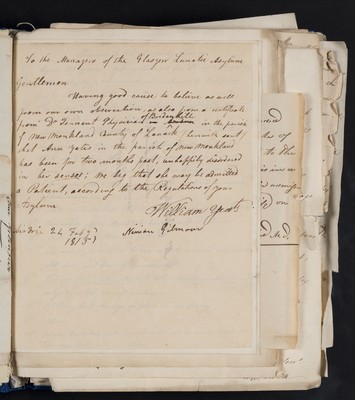 To the Manager of the Glasgow Lunatic Asylum
Gentlemen
Having good cause to believe as well
from our own observation, as also from a certificate
from Dr Tennent Physician of in the parish
of New Monkland County of Lanark
that Ann yates in the parish of New Monkland
has been for two months past, unhappily disordered
in her senses; We beg that she may be admitted
a Patient, according to the Regulations of your
Asylum
William Yeats
24 Feby
1815
Ninian Gilmour